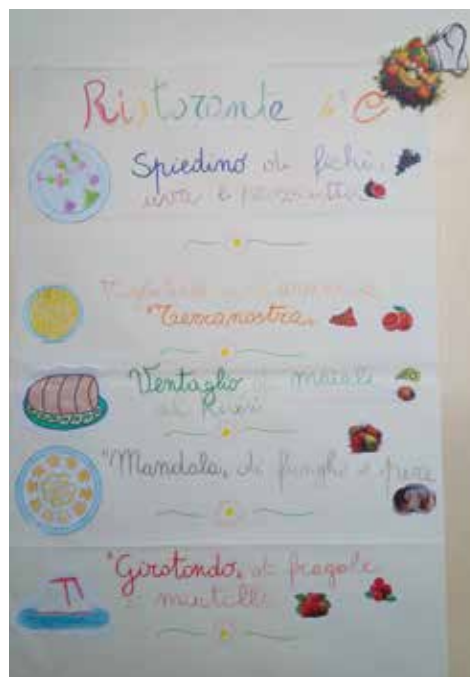 Ristorante 4ª C
Spiedino di fichi,
uva e prosciutto
"Terranostra"
Ventaglio di maiale
ai Kiwi
"Mandala" di funghi e pere
"Girotondo" di fragole
e mirtilli